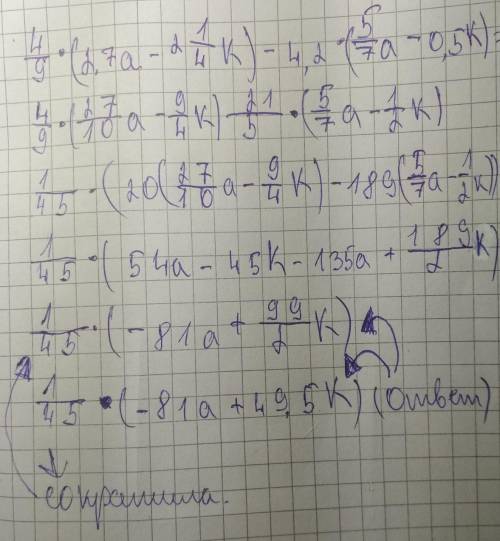 4/9 · (2,7a - 2 1/4 К) - 4,2 · (5/7 a - 0,5К) =
4/9 · (27/10 a - 9/4 К) - 21/5 · (5/7 a - 1/2 К)
1/45 · (20(27/10 a - 9/4 К) - 189(5/7 a - 1/2 К))
1/45 · (54a - 45К - 135a + 189/2 К)
1/45 · (-81a + 99/2 К)
1/45 · (-81a + 49,5К) (Ответ)
сократила.